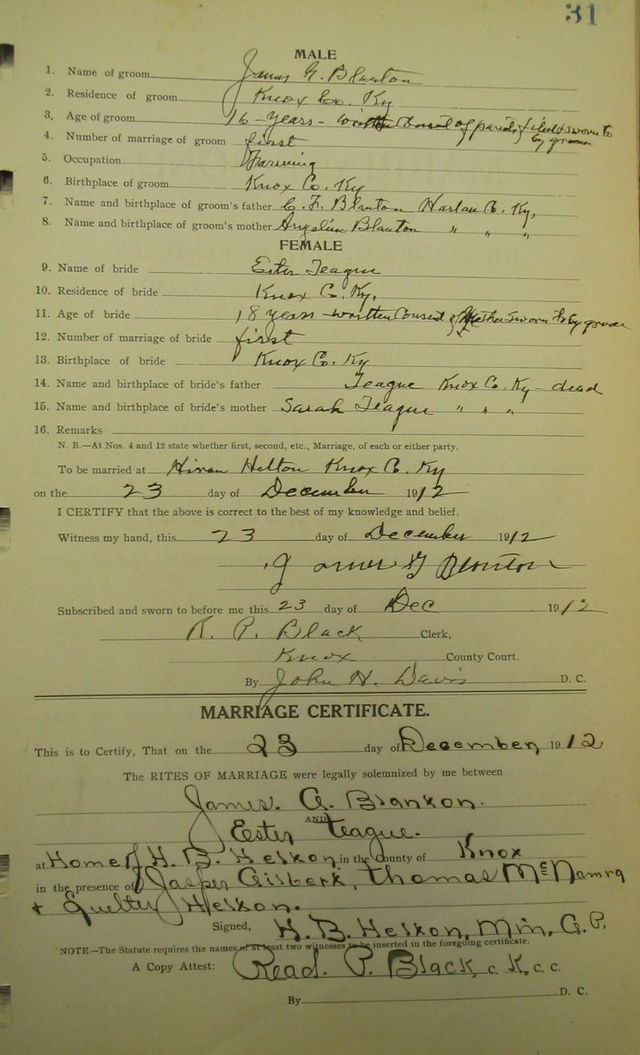 31
MALE
1. Name of groom James G. Blanton
2. Residence of groom Knox Co. Ky
3. Age of groom 16 - years - written Consent of parents filed & sworn to by groom
4. Number of marriage of groom first
5. Occupation Farming
6. Birthplace of groom Knox Co. Ky
7. Name and birthplace of groom's father C. F. Blanton Harlan Co. Ky,
8. Name and birthplace of groom's mother Blanton " " "
FEMALE
9. Name of bride Ester Teague
10. Residence of bride Knox Co. Ky,
11. Age of bride 18 years - written Consent of Mother Sworn to by groom
12. Number of marriage of bride first
13. Birthplace of bride Knox Co. Ky
14. Name and birthplace of bride's father Teague Knox Co. Ky - dead
15. Name and birthplace of bride's mother Sarah Teague " " "
16. Remarks
N. B.—At Nos. 4 and 12 state whether first, second, etc., Marriage, of each or either party.
To be married at Hiram Helton Knox Co. Ky
on the 23 day of December 1912
I CERTIFY that the above is correct to the best of my knowledge and belief.
Witness my hand, this 23 day of December 1912
James G Blanton
Subscribed and sworn to before me this 23 day of Dec 1912
R. P. Black Clerk,
Knox County Court.
By John H. Davis D. C.
MARRIAGE CERTIFICATE.
This is to Certify, That on the 23 day of December 1912
The RITES OF MARRIAGE were legally solemnized by me between
James. G. Blanton.
AND
Ester Teague.
at Home of H. B. Helton in the county of Knox
in the presence of Jasper Gilbert, Thomas McNamra
& Helton.
Signed, H. B. Helton, Min, G. P.
NOTE—The Statute requires the names of at least two witnesses to be inserted in the foregoing certificate.
A Copy Attest: Read. P. Black, C. K, C. C.
By D. C.